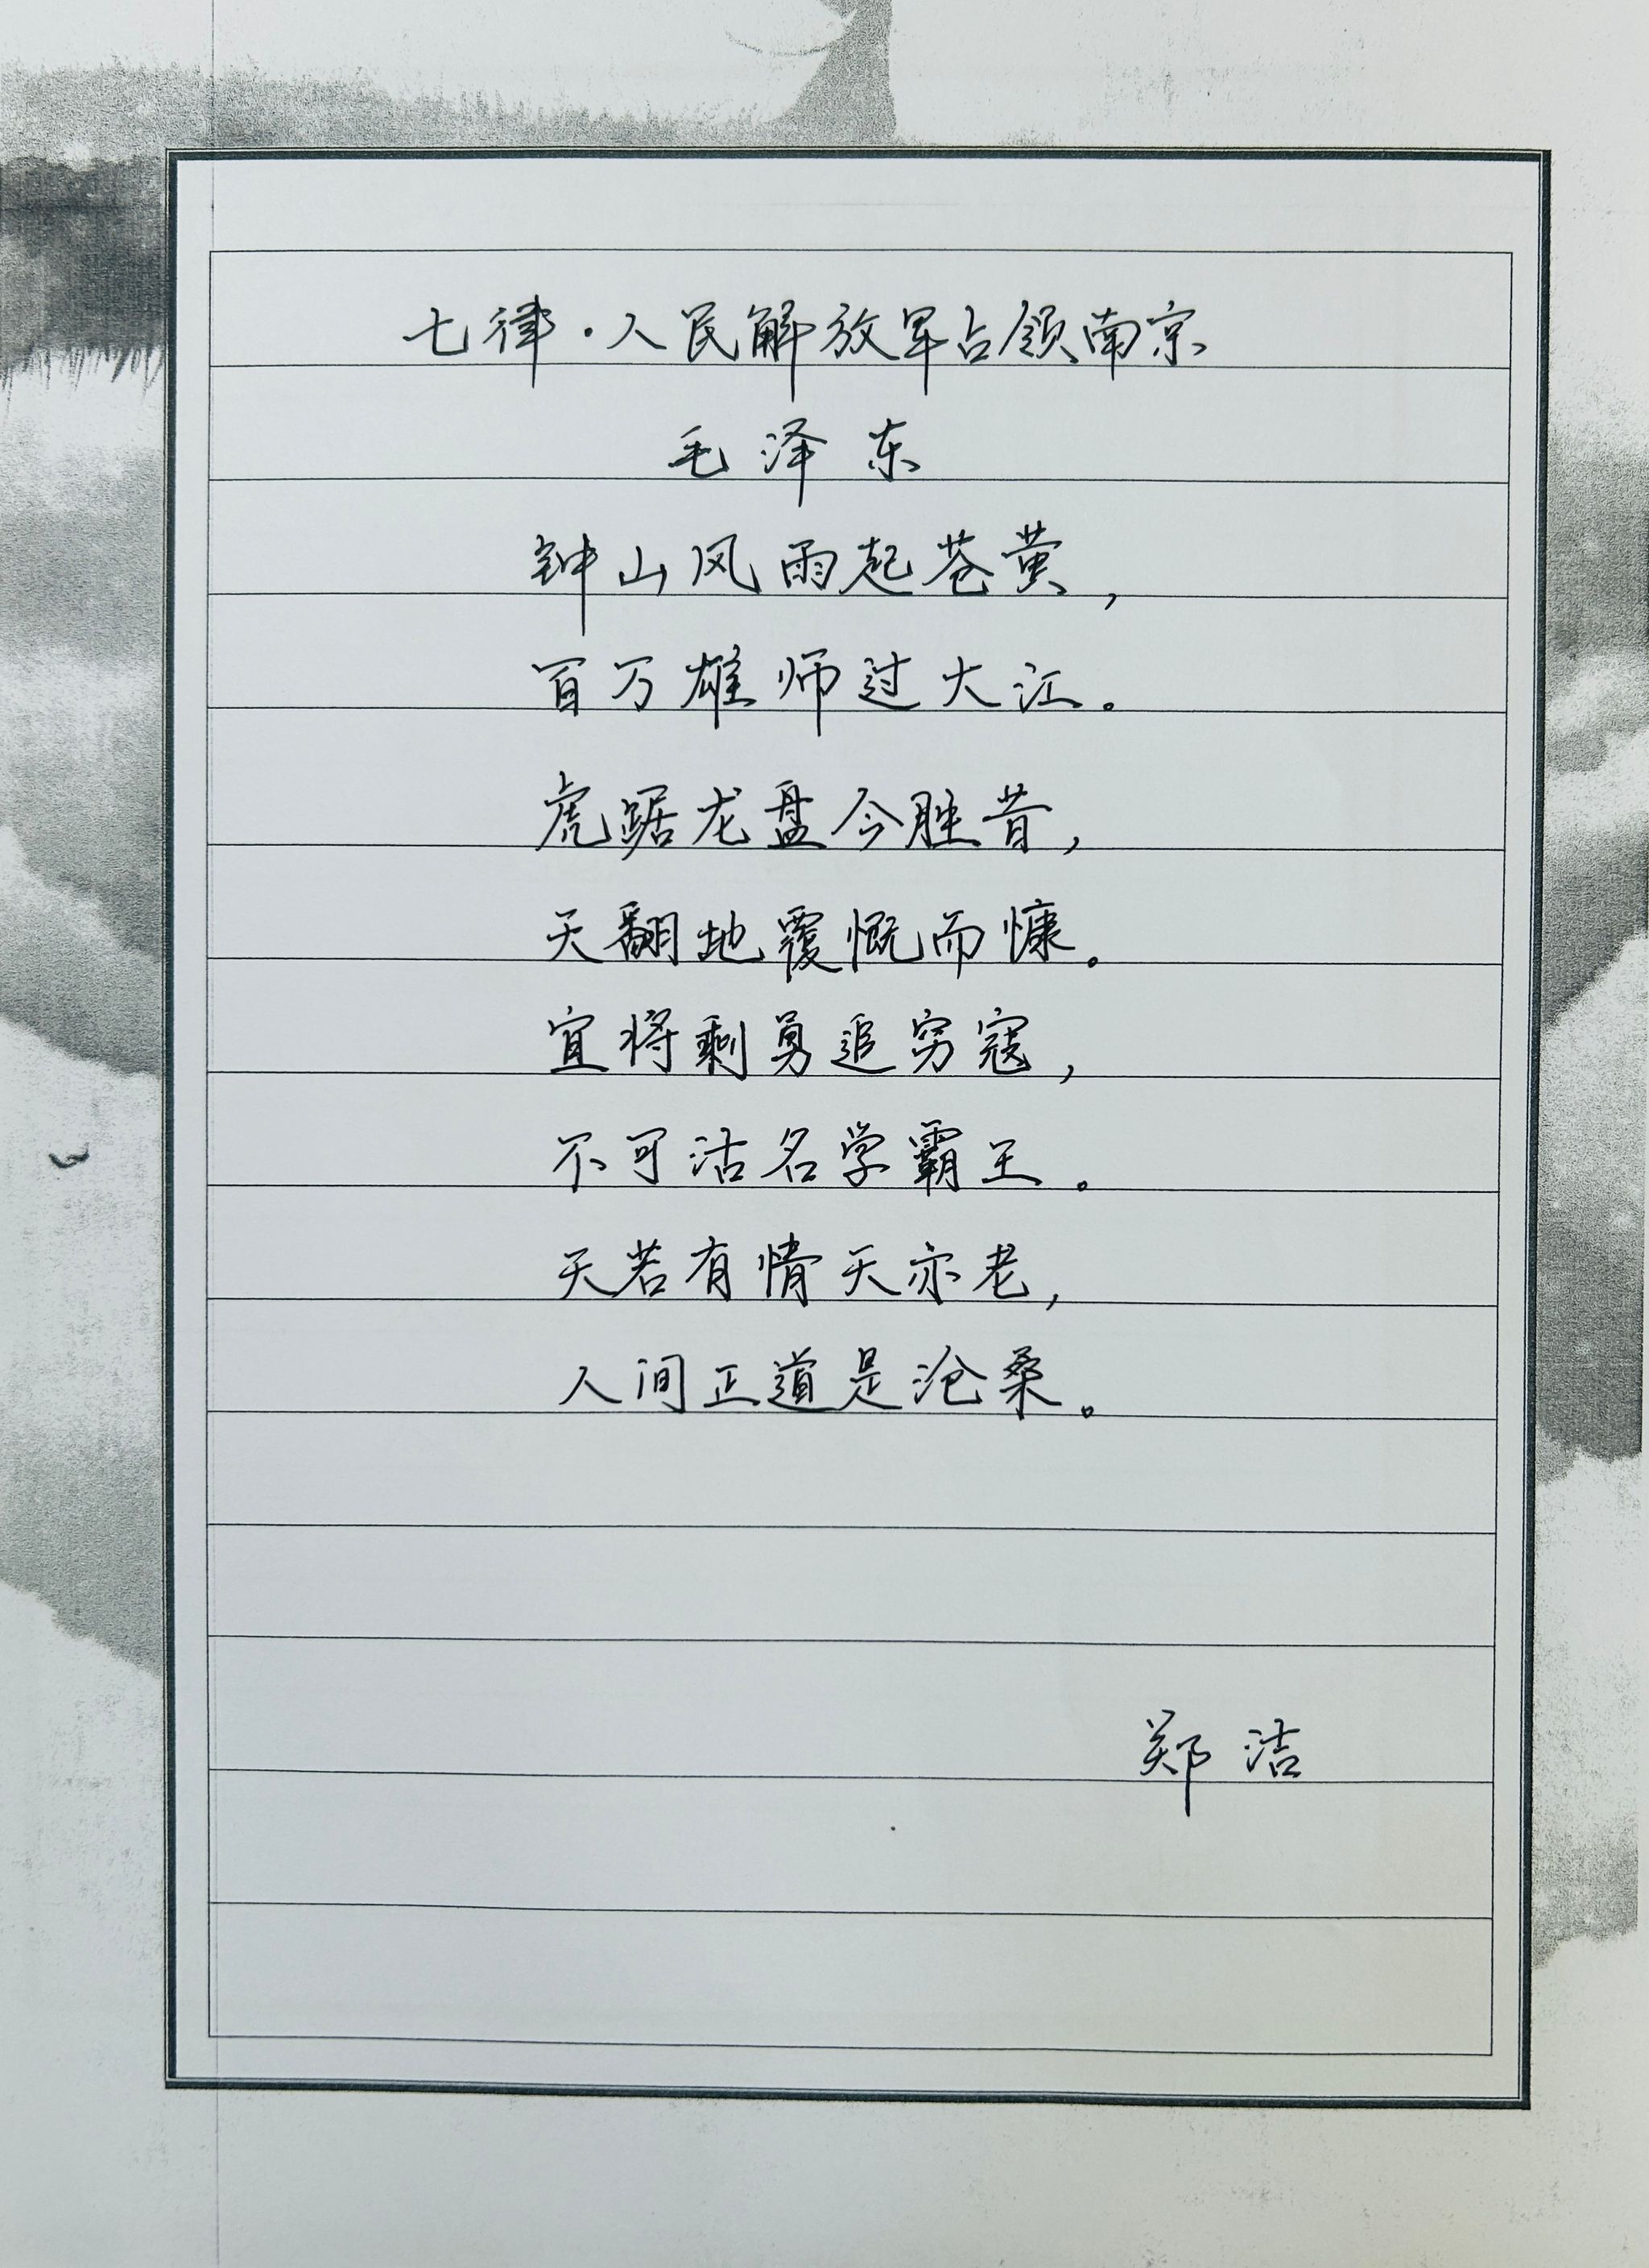 七律·人民解放军占领南京
毛泽东
钟山风雨起苍黄，
百万雄师过大江。
虎踞龙盘今胜昔，
天翻地覆慨而慷。
宜将剩勇追穷寇，
不可沽名学霸王。
天若有情天亦老，
人间正道是沧桑。
郑洁